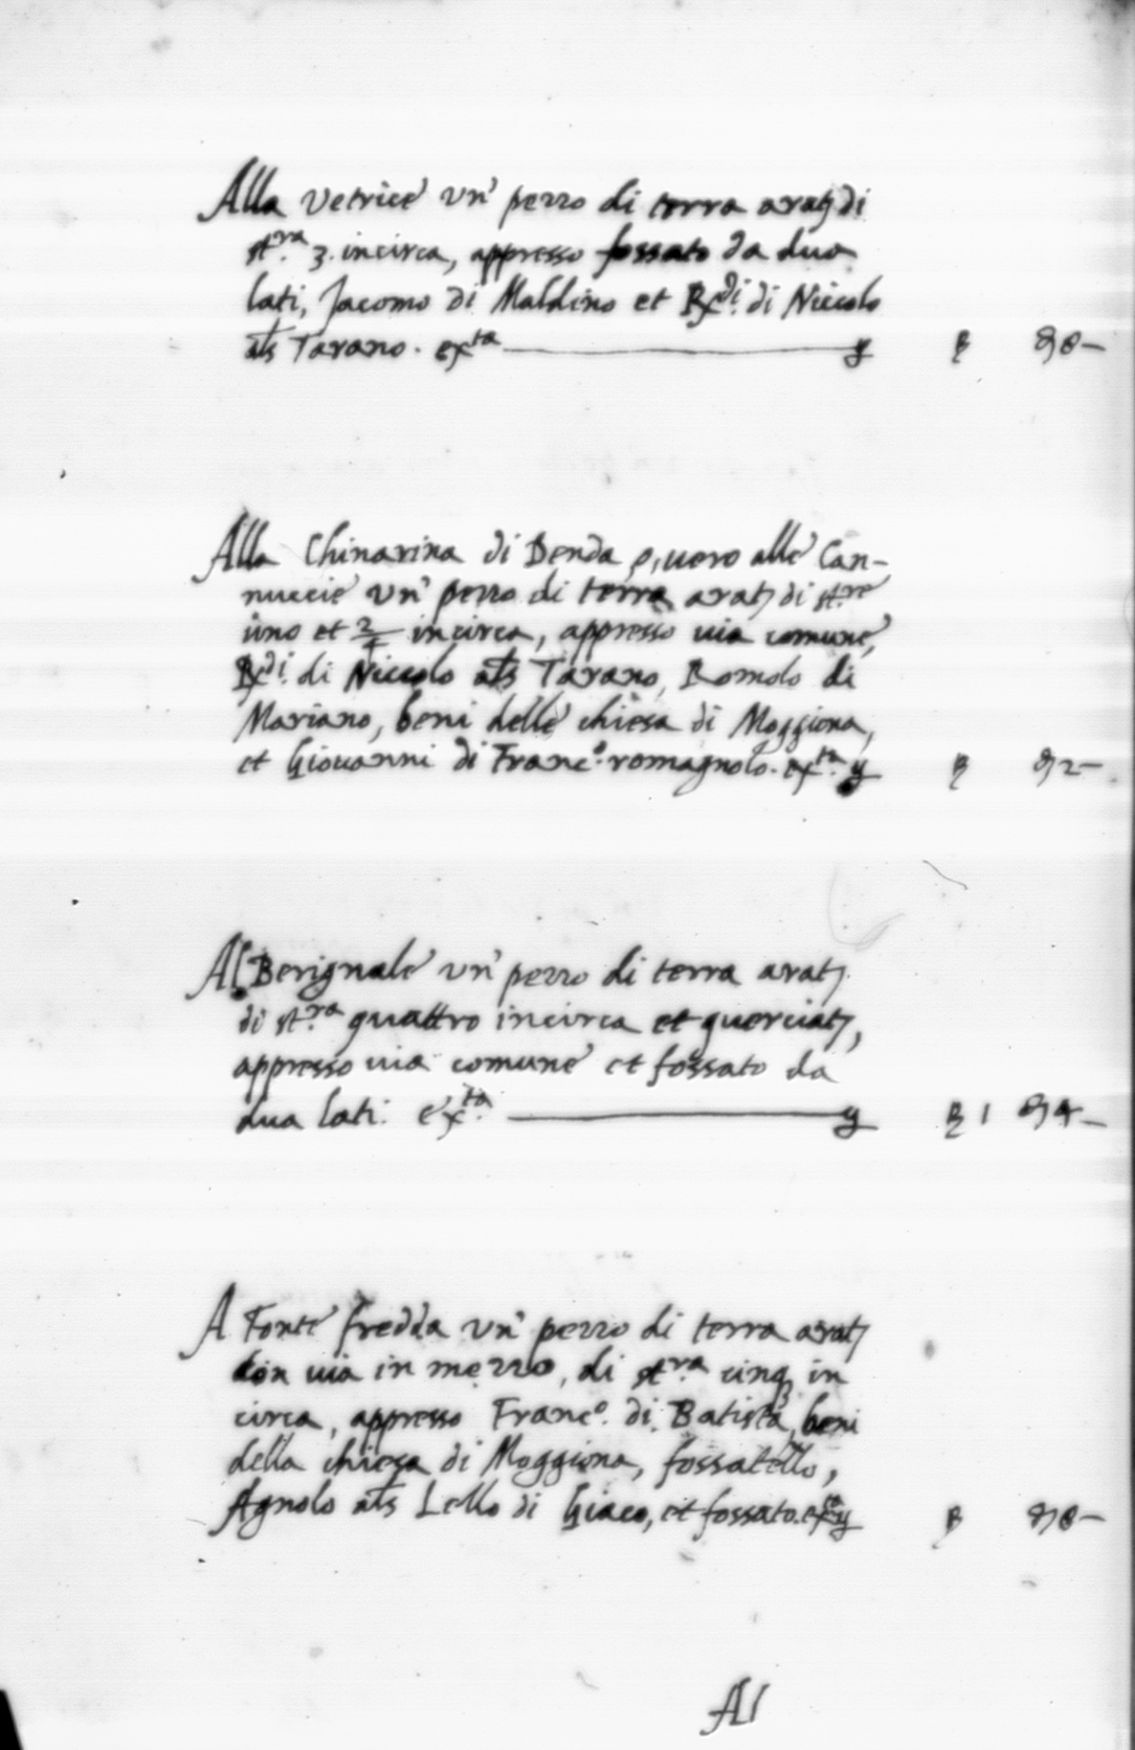 Alla vetrice un' pezzo di terra arat. di
st.ra 3. incirca, appresso fossato da dua
lati, Jacomo di Maldino et Rx.di di Niccolo
als Tarano. exta
Alla Chinarina di Benda, o, uero alle Can-
nuccie un' pezzo di terra arat. di st.re
uno et incirca, appresso uia comune,
Rx.di di Niccolo als Tarano, Romolo di
Mariano, beni delle chiesa di Moggiona,
et Giouanni di Franc.o romagnolo. ex.ta
Al Berignale un' pezzo di terra arat.
di st.ra quattro incirca et querciat.,
appresso uia comune et fossato da
dua lati. ex.ta
A Fonte fredda un' pezzo di terra arat.
con uia in mezzo, di st.ra cinq. in
circa, appresso Franc.o di Batista, beni
della chiesa di Moggiona, fossatello,
Agnolo als Lello di Giaco, et fossato. exta
Al